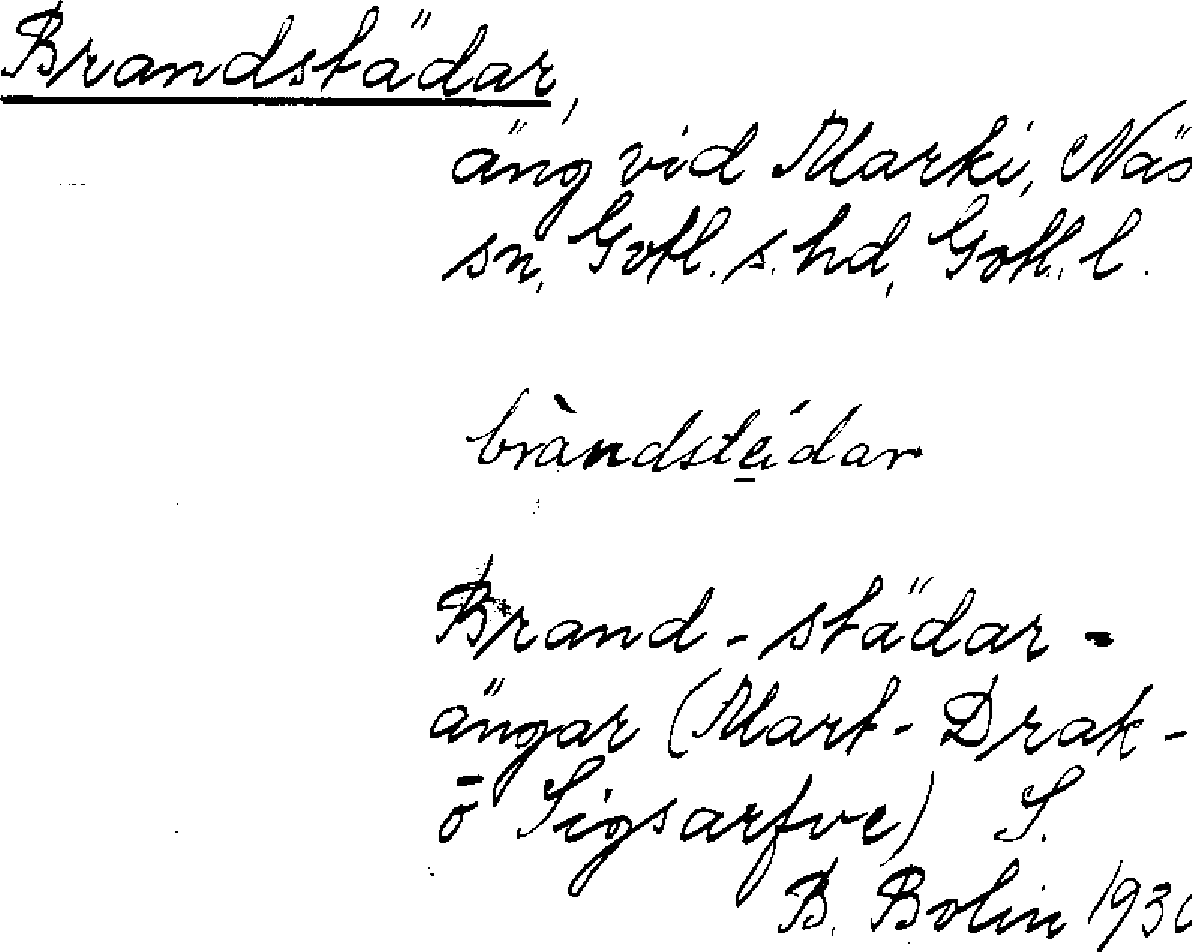 Brandstädar,
äng vid Marki, Näs
sn, Gotl. s. hd, Gotl. l.
bràndstéidar
Brand-städar-
ängar (Mart- Drak-
ō Sigsarfve) S.
B. Bolin 193